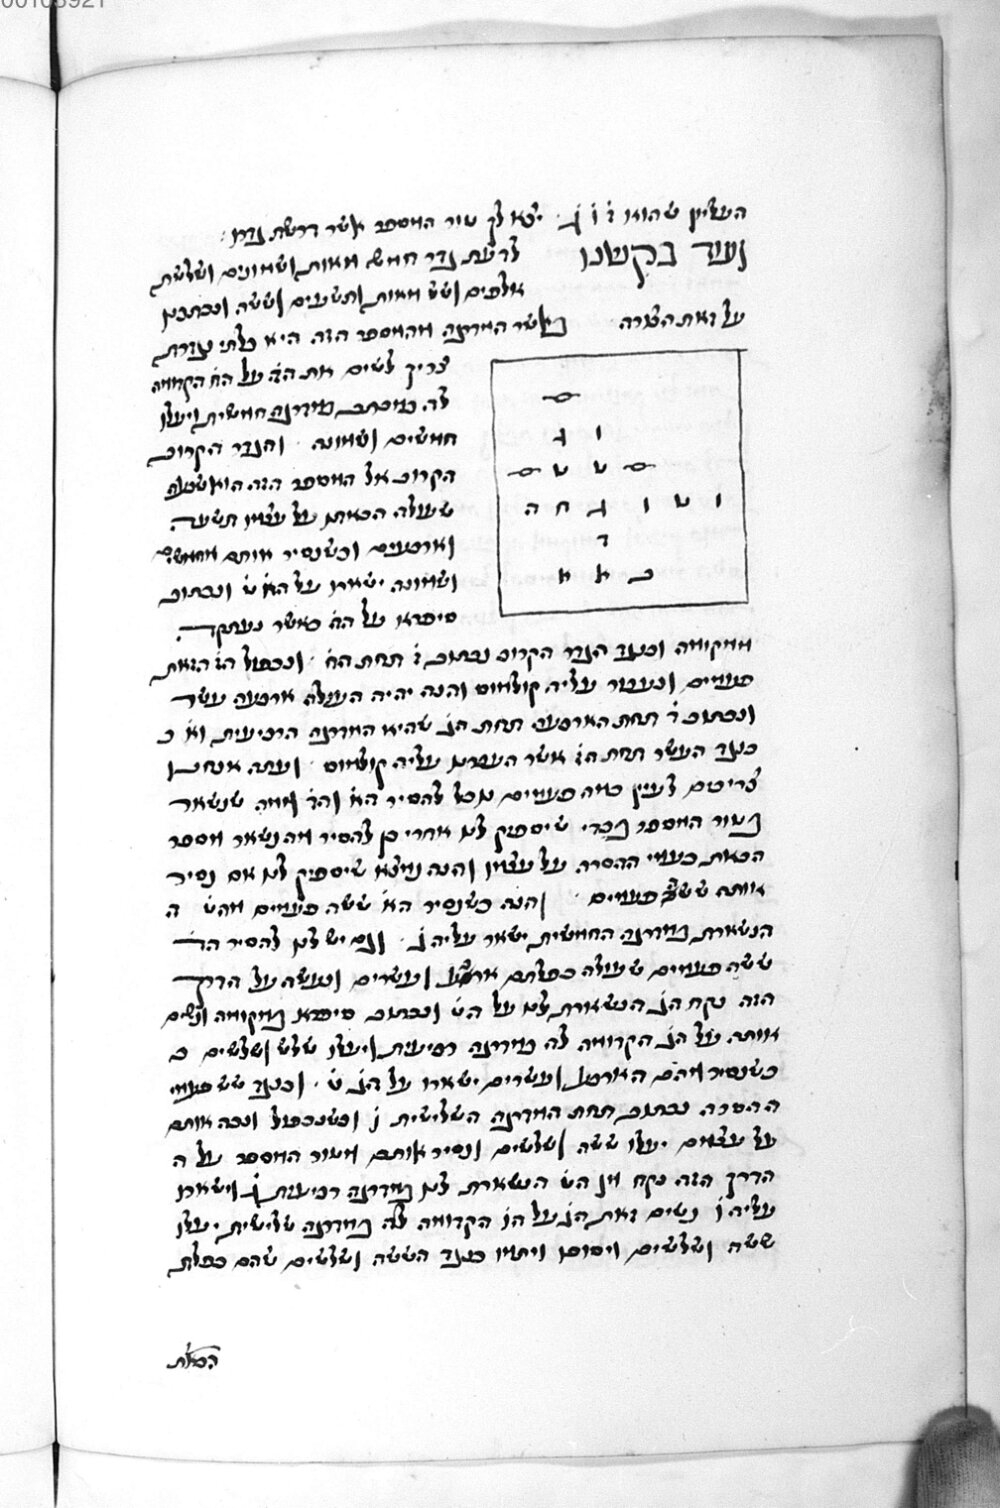 00103921
העליון שהוא ז ו ג׳ יצא לך טור המספר אשר דרשת גדרו׃
ועוד בקשנו לדעת גדר חמש מאות ושמונים ושלשת
אלפים ושש מאות ותשעים וששה ונכתבם
על זאת הצורה כאשר המדרגה מהמספר הזה היא בלתי נגדרת
צריך לשים את הה׳ על הח׳ הקודמת
לה במכתב במדרגה חמישית ויעלו
חמשים ושמונה והגדר הקרוב
הקרוב אל המספר הזה הוא שבעה
שעולה הכאתם על עצמו תשעה
וארבעים וכשנסיר אותם מחמשים
ושמונה ישארו על הח׳ ט׳ ונכתוב
סיפרא על הה׳ כאשר נעתקה
ס
ו ג
ס ט ט ס
ו ט ו ג ח ה
ד
ב א א
ממקומה וכנגד הגדר הקרוב נכתוב ז׳ תחת הח׳ ונכפול הז׳ הזאת
פעמים ונעבור עליה קולמוס והנה יהיה העולה ארבעה עשר
ונכתוב ד׳ תחת הארבעה תחת הג׳ שהיא המדרגה הרביעית וא׳ כ
כנגד העשר תחת הז׳ אשר העברנו עליה קולמוס ועתה אנחנו
צריכים לעיין כמה פעמים נוכל להסיר הא׳ והד׳ ממה שנשאר
מטור המספר בכדי שיספיק לנו אחרי כן להסיר מהנשאר מספר
הכאת פעמי ההסרה על עצמו והנה נמצא שיספיק לנו אם נסיר
אותה ששה פעמים והנה כשנסיר הא׳ ששה פעמים מהט׳ ה
הנשארת במדרגה החמישית ישאר עליה ג׳ וגם יש לנו להסיר הד׳
ששה פעמים שעולה כפלתם ארבע ועשרים ונעשה על הדרך
הזה נקח הג׳ הנשארת לנו על הט׳ ונכתוב סיפרא במקומה ונשים
אותה על הג׳ הקדומה לה במדרגה רביעית ויעלו שלש ושלשים כ
כשנסיר מהם הארבע ועשרים ישארו על הג׳ ט׳ וכנגד שש פעמי
ההסרה נכתוב תחת המדרגה השלישית ו׳ וכשנכפול ונכה אותם
על עצמם יעלו ששה ושלשים ונסיר אותם מטור המספר על ה
הדרך הזה נקח מן הט׳ הנשארת לנו במדרגה רביעית ג׳ וישארו
עליה ו׳ נשים זאת הג׳ על הו׳ הקדומה לה במדרגה שלישית יעלו
ששה ושלשים ויסורו ויתמו כנגד הששה ושלשים שהם כפלת
הכאת